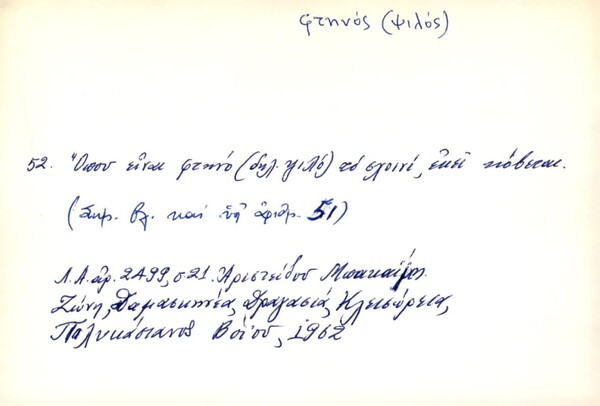 φτηνός (ψιλός)
52. Ὅπου εἶναι φτηνό (δηλ. ψιλό) τό σχοινί, ἐκεῖ κόβεται.
(Σημ. βλ. καί ὑπ' ἀριθμ. 51)
Λ.Α. ἀρ. 2499, σ 21. Ἀριστείδου Μπακαΐμη.
Ζώνη, Δαμασκηνέα, Δραγασιά, Κλεισώρεια,
Πολυκάστανο Βοΐου, 1962